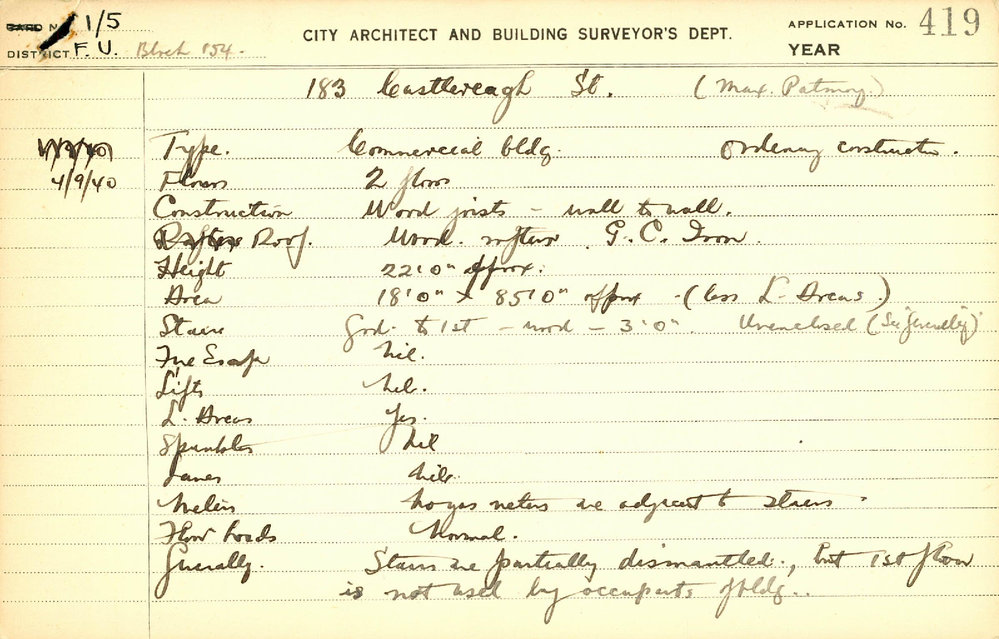 CARD No. 1/5
CITY ARCHITECT AND BUILDING SURVEYOR'S DEPT.
APPLICATION No. 419
DISTRICT F. U. Block 154.
YEAR
183 Castlereagh St. (Max. Patmoy.)
4/9/40
Type. Commercial bldg. Ordinary construction.
4/9/40 Floors 2 floors
Construction Wood joists - wall to wall.
Roof. Wood rafters. G. C. Iron.
Height 22'0" approx.
Area 18'0" x 85'0" approx - (less L. Areas)
Stairs Grd. to 1st - wood - 3'0". Unenclosed (See "Generally")
Fire Escape Nil.
Lifts Nil.
L. Areas Yes.
Sprinklers Nil
Lanes Nil.
Meters No gas meters are adjacent to stairs.
Floor Loads Normal.
Generally. Stairs are partially dismantled, but 1st floor
is not used by occupants of bldg..